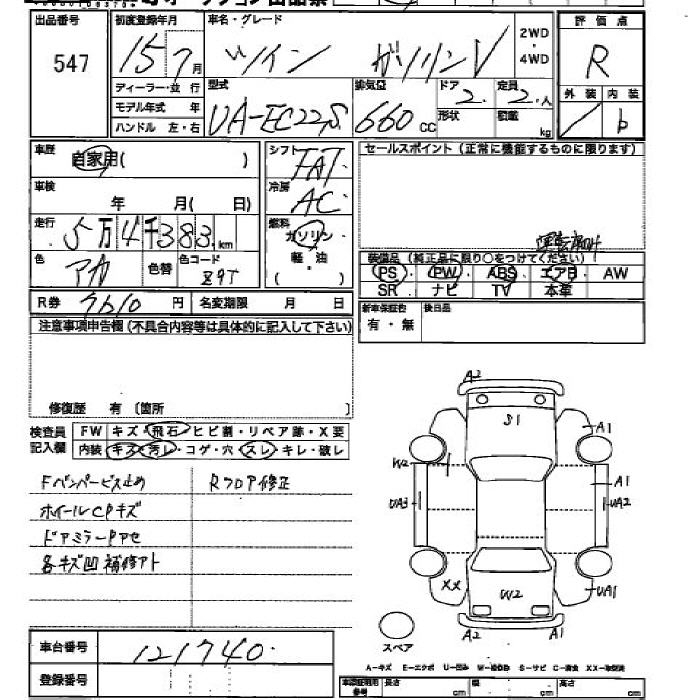 出品番号 547
初度登録年月 15 7月
車名・グレード ツイン ガソリンV
2WD・4WD
評価点 R
外装 / 内装 b
ディーラー・並行
モデル年式 年
ハンドル 左・右
型式 UA-EC22S
排気量 660 cc
ドア形状 2.
定員 2.人
積載 kg
車歴 自家用( )
車検 年 月( 日)
走行 5万4千383km
色 アカ 色替 色コード Z9T
シフト FAT
冷房 AC
燃料 ガソリン・軽油 ( )
セールスポイント (正常に機能するものに限ります)
装備品 (純正品に限り○をつけてください)
PS PW ABS エアB AW
SR ナビ TV 本革
R券 7610 円 名変期限 月 日
新車保証書 有・無 後日品
注意事項申告欄 (不具合内容等は具体的に記入して下さい)
修復歴 有 〔箇所 〕
検査員記入欄
FW キズ・飛石・ヒビ割・リペア跡・X要
内装 キズ・汚レ・コゲ・穴・スレ・キレ・破レ
Fバンパービス止め Rフロア修正
ホイールCPキズ
ドアミラーPアセ
各キズ凹補修アト
A2
S1
A1
W2
A1
UA3
UA2
XX
W2
UA1
A2
A1
スペア
車台番号 121740
登録番号
A-キズ E-エクボ U-凹み W-補修跡 S-サビ C-腐食 XX-交換済
長さ cm 幅 cm 高さ cm